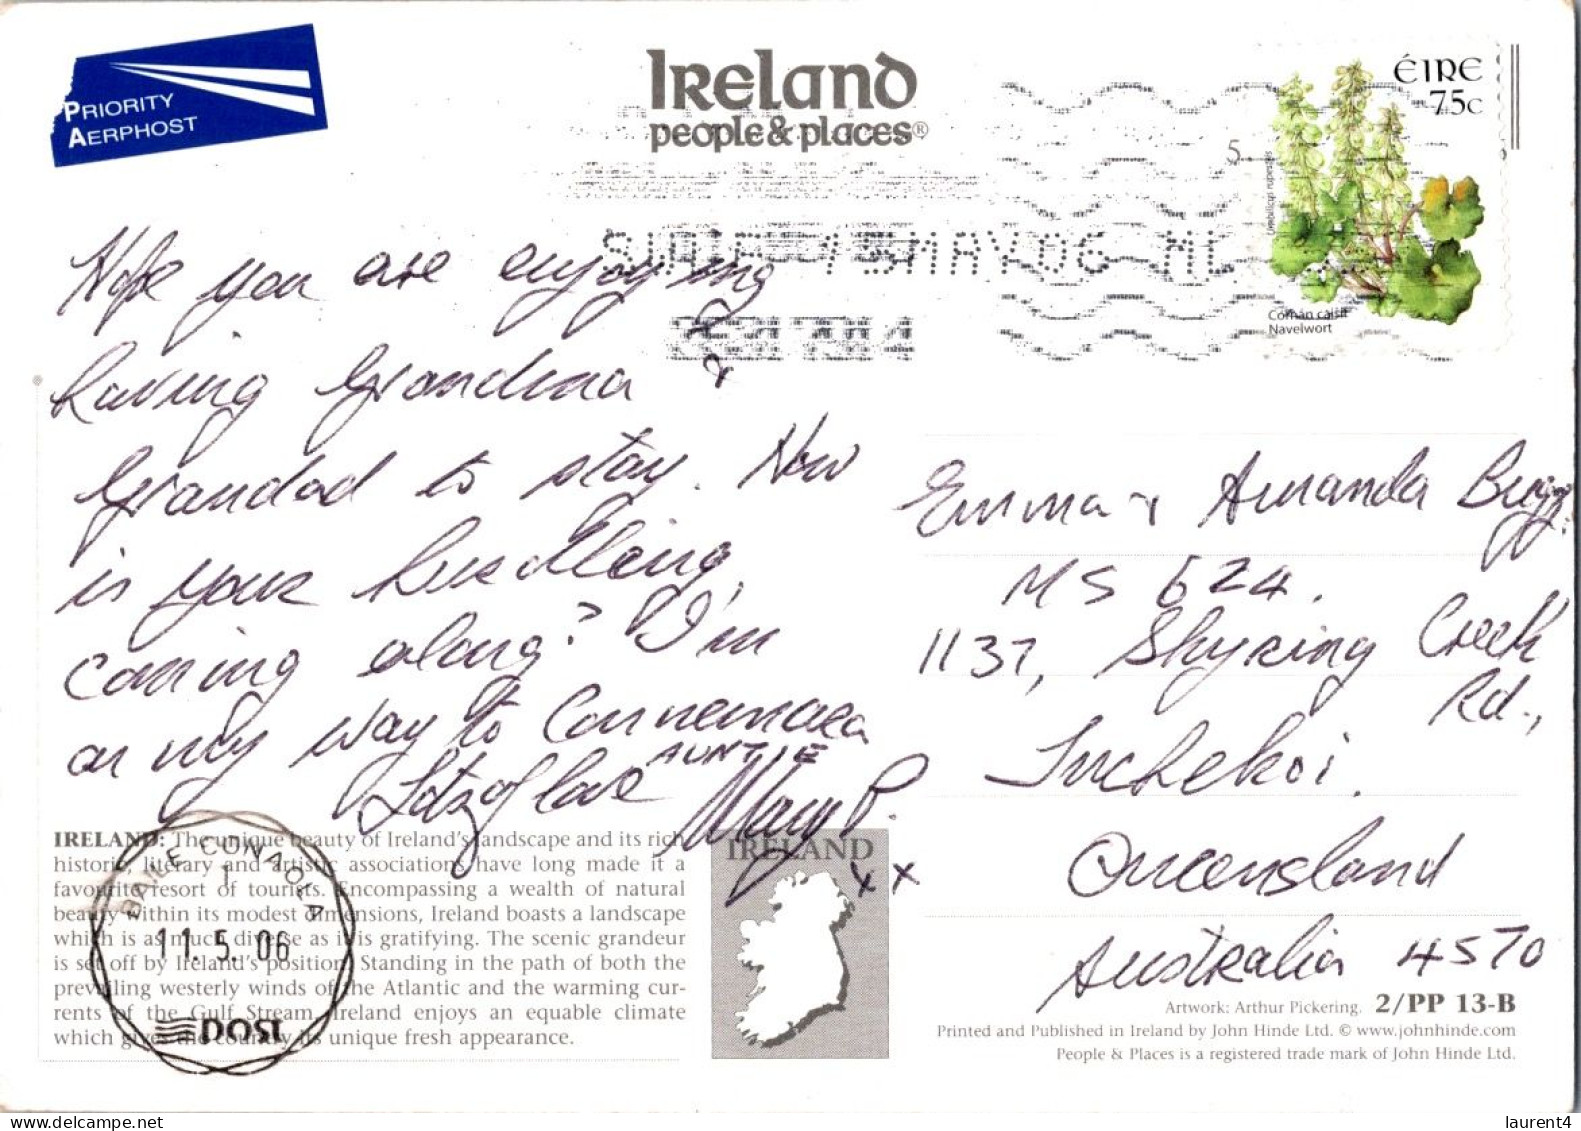 PRIORITY
AERPHOST
Ireland
people & places®
ÉIRE
75c
Umbilicus rupestris
Cornán caisil
Navelwort
15MAY06 ML
Hope you are enjoying
having Grandma &
Grandad to stay. Now
is your hurdling
coming along? I'm
on my way to Connemara
Lotz of love AUNTIE
Mary P.
x x
Emma & Amanda Bugg.
MS 624.
1137, Skyring Creek
Rd.,
Tuchekoi.
Queensland
Australia 4570
IRELAND: The unique beauty of Ireland's landscape and its rich
historic, literary and artistic associations have long made it a
favourite resort of tourists. Encompassing a wealth of natural
beauty within its modest dimensions, Ireland boasts a landscape
which is as much diverse as it is gratifying. The scenic grandeur
is set off by Ireland's position. Standing in the path of both the
prevailing westerly winds of the Atlantic and the warming cur-
rents of the Gulf Stream, Ireland enjoys an equable climate
which gives the country its unique fresh appearance.
BAILE CONAOLA
1
11.5.06
POST
IRELAND
Artwork: Arthur Pickering. 2/PP 13-B
Printed and Published in Ireland by John Hinde Ltd. © www.johnhinde.com
People & Places is a registered trade mark of John Hinde Ltd.
laurent4